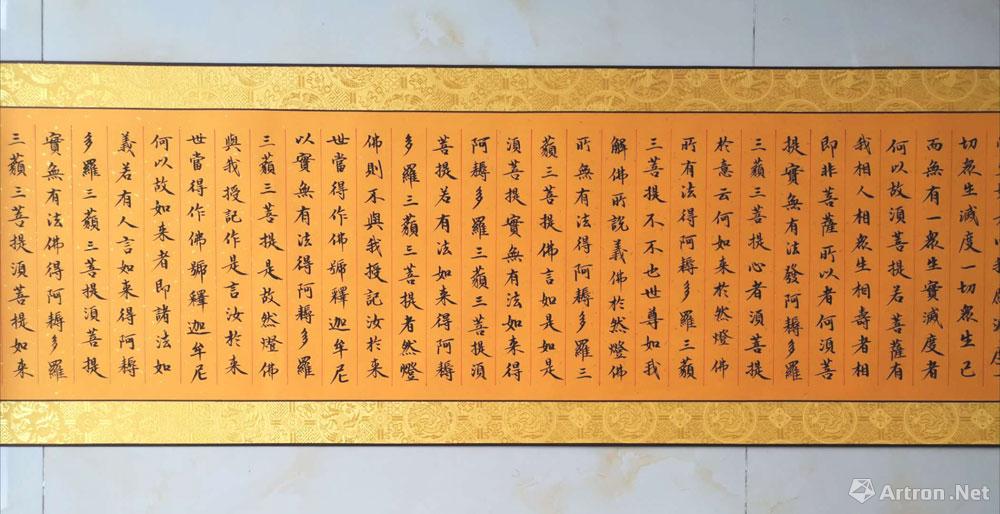 切眾生滅度一切眾生已
而無有一眾生實滅度者
何以故須菩提若菩薩有
我相人相眾生相壽者相
即非菩薩所以者何須菩
提實無有法發阿耨多羅
三藐三菩提心者須菩提
於意云何如来於然燈佛
所有法得阿耨多羅三藐
三菩提不不也世尊如我
解佛所説義佛於然燈佛
所無有法得阿耨多羅三
藐三菩提佛言如是如是
須菩提實無有法如来得
阿耨多羅三藐三菩提須
菩提若有法如来得阿耨
多羅三藐三菩提者然燈
佛則不與我授記汝於来
世當得作佛號釋迦牟尼
以實無有法得阿耨多羅
三藐三菩提是故然燈佛
與我授記作是言汝於来
世當得作佛號釋迦牟尼
何以故如来者即諸法如
義若有人言如来得阿耨
多羅三藐三菩提須菩提
實無有法佛得阿耨多羅
三藐三菩提須菩提如来
Artron.Net